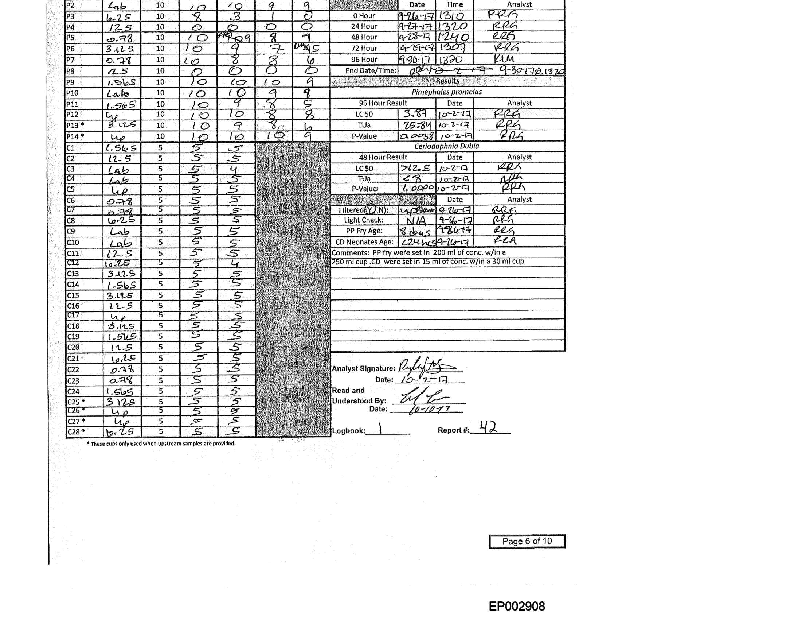 P2 Lab 10 10 10 9 9 Date Time Analyst
P3 6.25 10 8 3 1 0 0 Hour 9-26-17 1310 RRG
P4 12.5 10 0 0 0 0 24 Hour 9-27-17 1320 RRG
P5 0.78 10 10 9 8 7 48 Hour 9-28-17 1240 RRG
P6 3.125 10 10 9 7 5 72 Hour 1307 RRG
P7 0.78 10 10 8 8 6 96 Hour 9-30-17 1320 KLM
P8 12.5 10 0 0 0 0 End Date/Time: 9-30-17 @ 1320
P9 1.565 10 10 10 10 9 Results
P10 Lab 10 10 10 9 9 Pimephales promelas
P11 1.565 10 10 9 8 5 96 Hour Result Date Analyst
P12 Up 10 10 10 8 8 LC50 3.87 10-2-17 RRG
P13 * 3.125 10 10 9 8 6 TUa 25.84 10-2-17 RRG
P14 * Up 10 10 10 10 9 P-Value 10-2-17 RRG
C1 1.565 5 5 5 Ceriodaphnia Dubia
C2 12.5 5 5 5 48 Hour Result Date Analyst
C3 Lab 5 5 4 LC50 >12.5 10-2-17 RRG
C4 Lab 5 5 5 TUa <8 10-2-17 RRG
C5 Up 5 5 5 P-Value 1.0000 10-2-17 RRG
C6 0.78 5 5 5 Date Analyst
C7 0.78 5 5 5 Filtered(Y/N): 9-26-17 RRG
C8 6.25 5 5 5 Light Check: N/A 9-26-17 RRG
C9 Lab 5 5 5 PP Fry Age: 8 days 9-26-17 RRG
C10 Lab 5 5 5 CD Neonates Age: <24 hrs 9-26-17 RRG
C11 12.5 5 5 5 Comments: PP fry were set in 200 ml of conc. w/in a
C12 6.25 5 5 4 250 ml cup .CD were set in 15 ml of conc. w/in a 30 ml cup
C13 3.125 5 5 5
C14 1.565 5 5 5
C15 3.125 5 5 5
C16 12.5 5 5 5
C17 Up 5 5 5
C18 3.125 5 5 5
C19 1.565 5 5 5
C20 12.5 5 5 5
C21 6.25 5 5 5
C22 0.78 5 5 5 Analyst Signature:
C23 0.78 5 5 5 Date: 10-2-17
C24 1.565 5 5 5 Read and
C25 * 3.125 5 5 5 Understood By:
C26 * Up 5 5 5 Date: 10-10-17
C27 * Up 5 5 5
C28 * 6.25 5 5 5 Logbook: 1 Report #: 42
* These cups only used when upstream samples are provided.
Page 6 of 10
EP002908